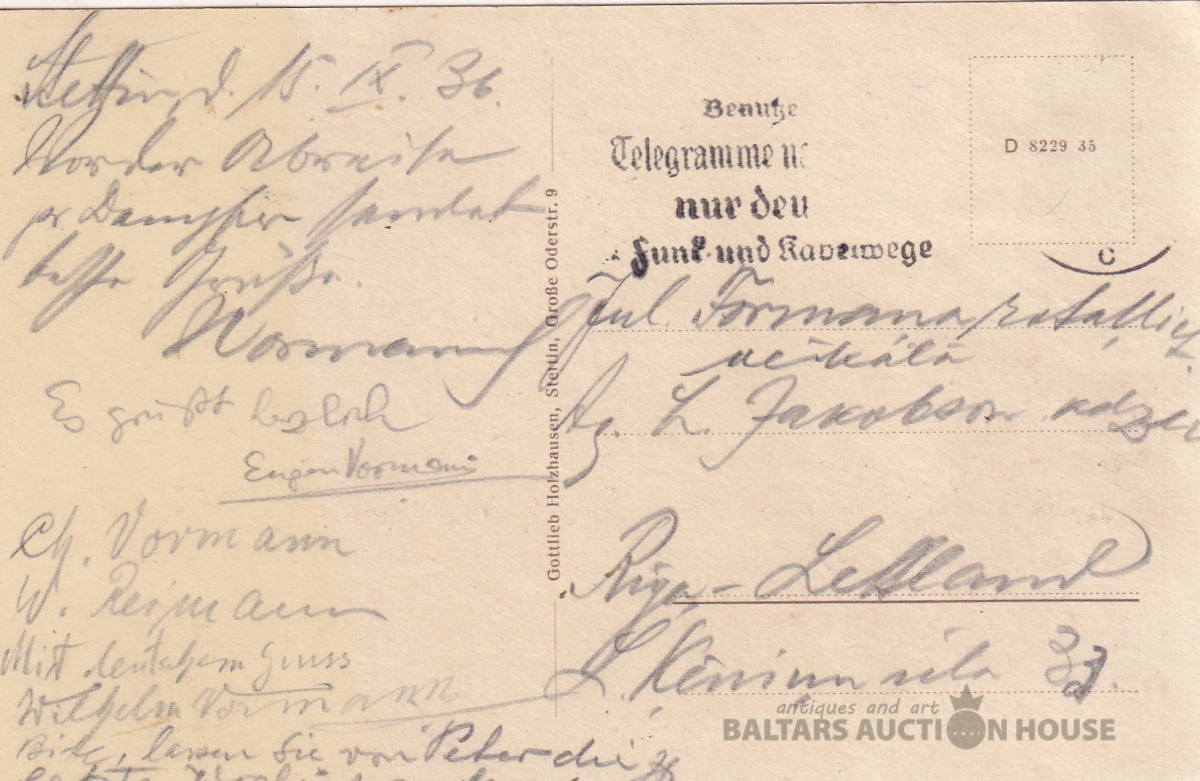 Stettin, d. 15. IX. 36.
Vor der Abreise
pr Dampfer sendet
beste Grüße.
Vormann
Es grüßt herzlich
Eugen Vormann
Ch. Vormann
W. Reimann
Mit deutschem Gruss
Wilhelm Vormann
Bitte, lassen Sie von Peter die
Gottlieb Holzhausen, Stettin, Große Oderstr. 9
Benutze
Telegramme na
nur deu
Funk- und Kabelwege
D 8229 35
C
Jul. Formana rotaļlietu
veikala
Ag. L. Jakobson kdze
Riga - Lettland
L. Ķēniņu iela 33.
antiques and art
BALTARS AUCTION HOUSE